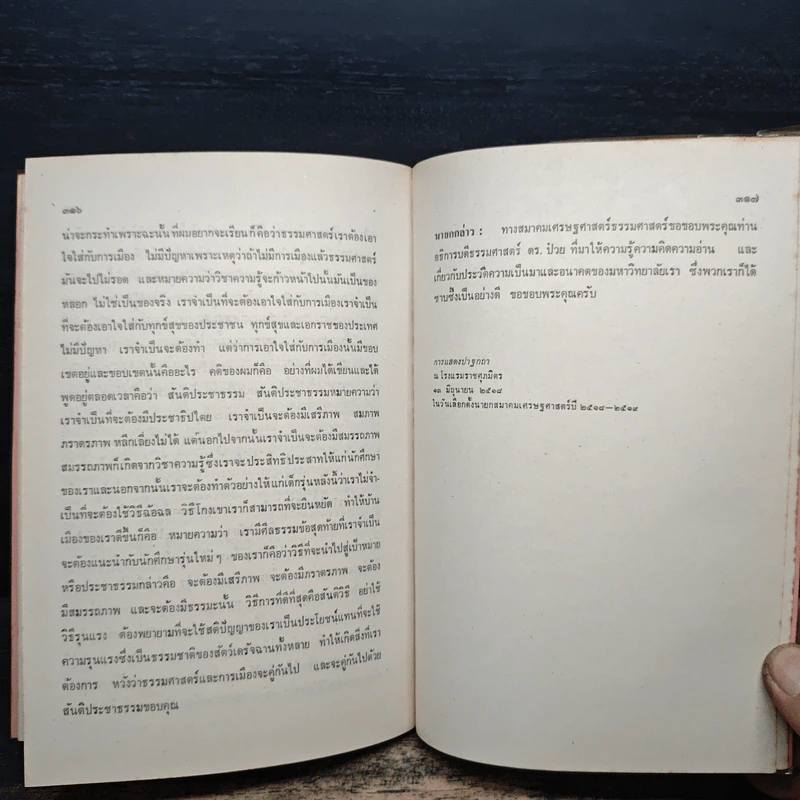 ๓๑๖
น่าจะกระทำเพราะฉะนั้นที่ผมอยากจะเรียนก็คือว่าธรรมศาสตร์เราต้องเอา
ใจใส่กับการเมือง ไม่มีปัญหาเพราะเหตุว่าถ้าไม่มีการเมืองแล้วธรรมศาสตร์
มันจะไปไม่รอด และหมายความว่าวิชาความรู้จะก้าวหน้าไปนั้นมันเป็นของ
หลอก ไม่ใช่เป็นของจริง เราจำเป็นที่จะต้องเอาใจใส่กับการเมืองเราจำเป็น
ที่จะต้องเอาใจใส่กับทุกข์สุขของประชาชน ทุกข์สุขและเอกราชของประเทศ
ไม่มีปัญหา เราจำเป็นจะต้องทำ แต่ว่าการเอาใจใส่กับการเมืองนั้นมีขอบ
เขตอยู่และขอบเขตนั้นคืออะไร คติของผมก็คือ อย่างที่ผมได้เขียนและได้
พูดอยู่ตลอดเวลาคือว่า สันติประชาธรรม สันติประชาธรรมหมายความว่า
เราจำเป็นที่จะต้องมีประชาธิปไตย เราจำเป็นที่จะต้องมีเสรีภาพ สมภาพ
ภราดรภาพ หลีกเลี่ยงไม่ได้ แต่นอกไปจากนั้นเราจำเป็นจะต้องมีสมรรถภาพ
สมรรถภาพก็เกิดจากวิชาความรู้ซึ่งเราจะประสิทธิประสาทให้แก่นักศึกษา
ของเราและนอกจากนั้นเราจะต้องทำตัวอย่างให้แก่เด็กรุ่นหลังนี้ว่าเราไม่จำ-
เป็นที่จะต้องใช้วิธีฉ้อฉล วิธีโกงเขาเราก็สามารถที่จะยืนหยัด ทำให้บ้าน
เมืองของเราดีขึ้นก็คือ หมายความว่า เรามีศีลธรรมข้อสุดท้ายที่เราจำเป็น
จะต้องแนะนำกับนักศึกษารุ่นใหม่ๆ ของเราก็คือว่าวิธีที่จะนำไปสู่เป้าหมาย
หรือประชาธรรมกล่าวคือ จะต้องมีเสรีภาพ จะต้องมีภราดรภาพ จะต้อง
มีสมรรถภาพ และจะต้องมีธรรมะนั้น วิธีการที่ดีที่สุดคือสันติวิธี อย่าใช้
วิธีรุนแรง ต้องพยายามที่จะใช้สติปัญญาของเราเป็นประโยชน์แทนที่จะใช้
ความรุนแรงซึ่งเป็นธรรมชาติของสัตว์เดรัจฉานทั้งหลาย ทำให้เกิดสิ่งที่เรา
ต้องการ หวังว่าธรรมศาสตร์และการเมืองจะคู่กันไป และจะคู่กันไปด้วย
สันติประชาธรรมขอบคุณ
๓๑๗
นายกกล่าว : ทางสมาคมเศรษฐศาสตร์ธรรมศาสตร์ขอขอบพระคุณท่าน
อธิการบดีธรรมศาสตร์ ดร. ป๋วย ที่มาให้ความรู้ความคิดความอ่าน และ
เกี่ยวกับประวัติความเป็นมาและอนาคตของมหาวิทยาลัยเรา ซึ่งพวกเราก็ได้
ซาบซึ้งเป็นอย่างดี ขอขอบพระคุณครับ
การแสดงปาฐกถา
ณ โรงแรมราชศุภมิตร
๑๓ มิถุนายน ๒๕๑๘
ในวันเลือกตั้งนายกสมาคมเศรษฐศาสตร์ปี ๒๕๑๘—๒๕๑๙